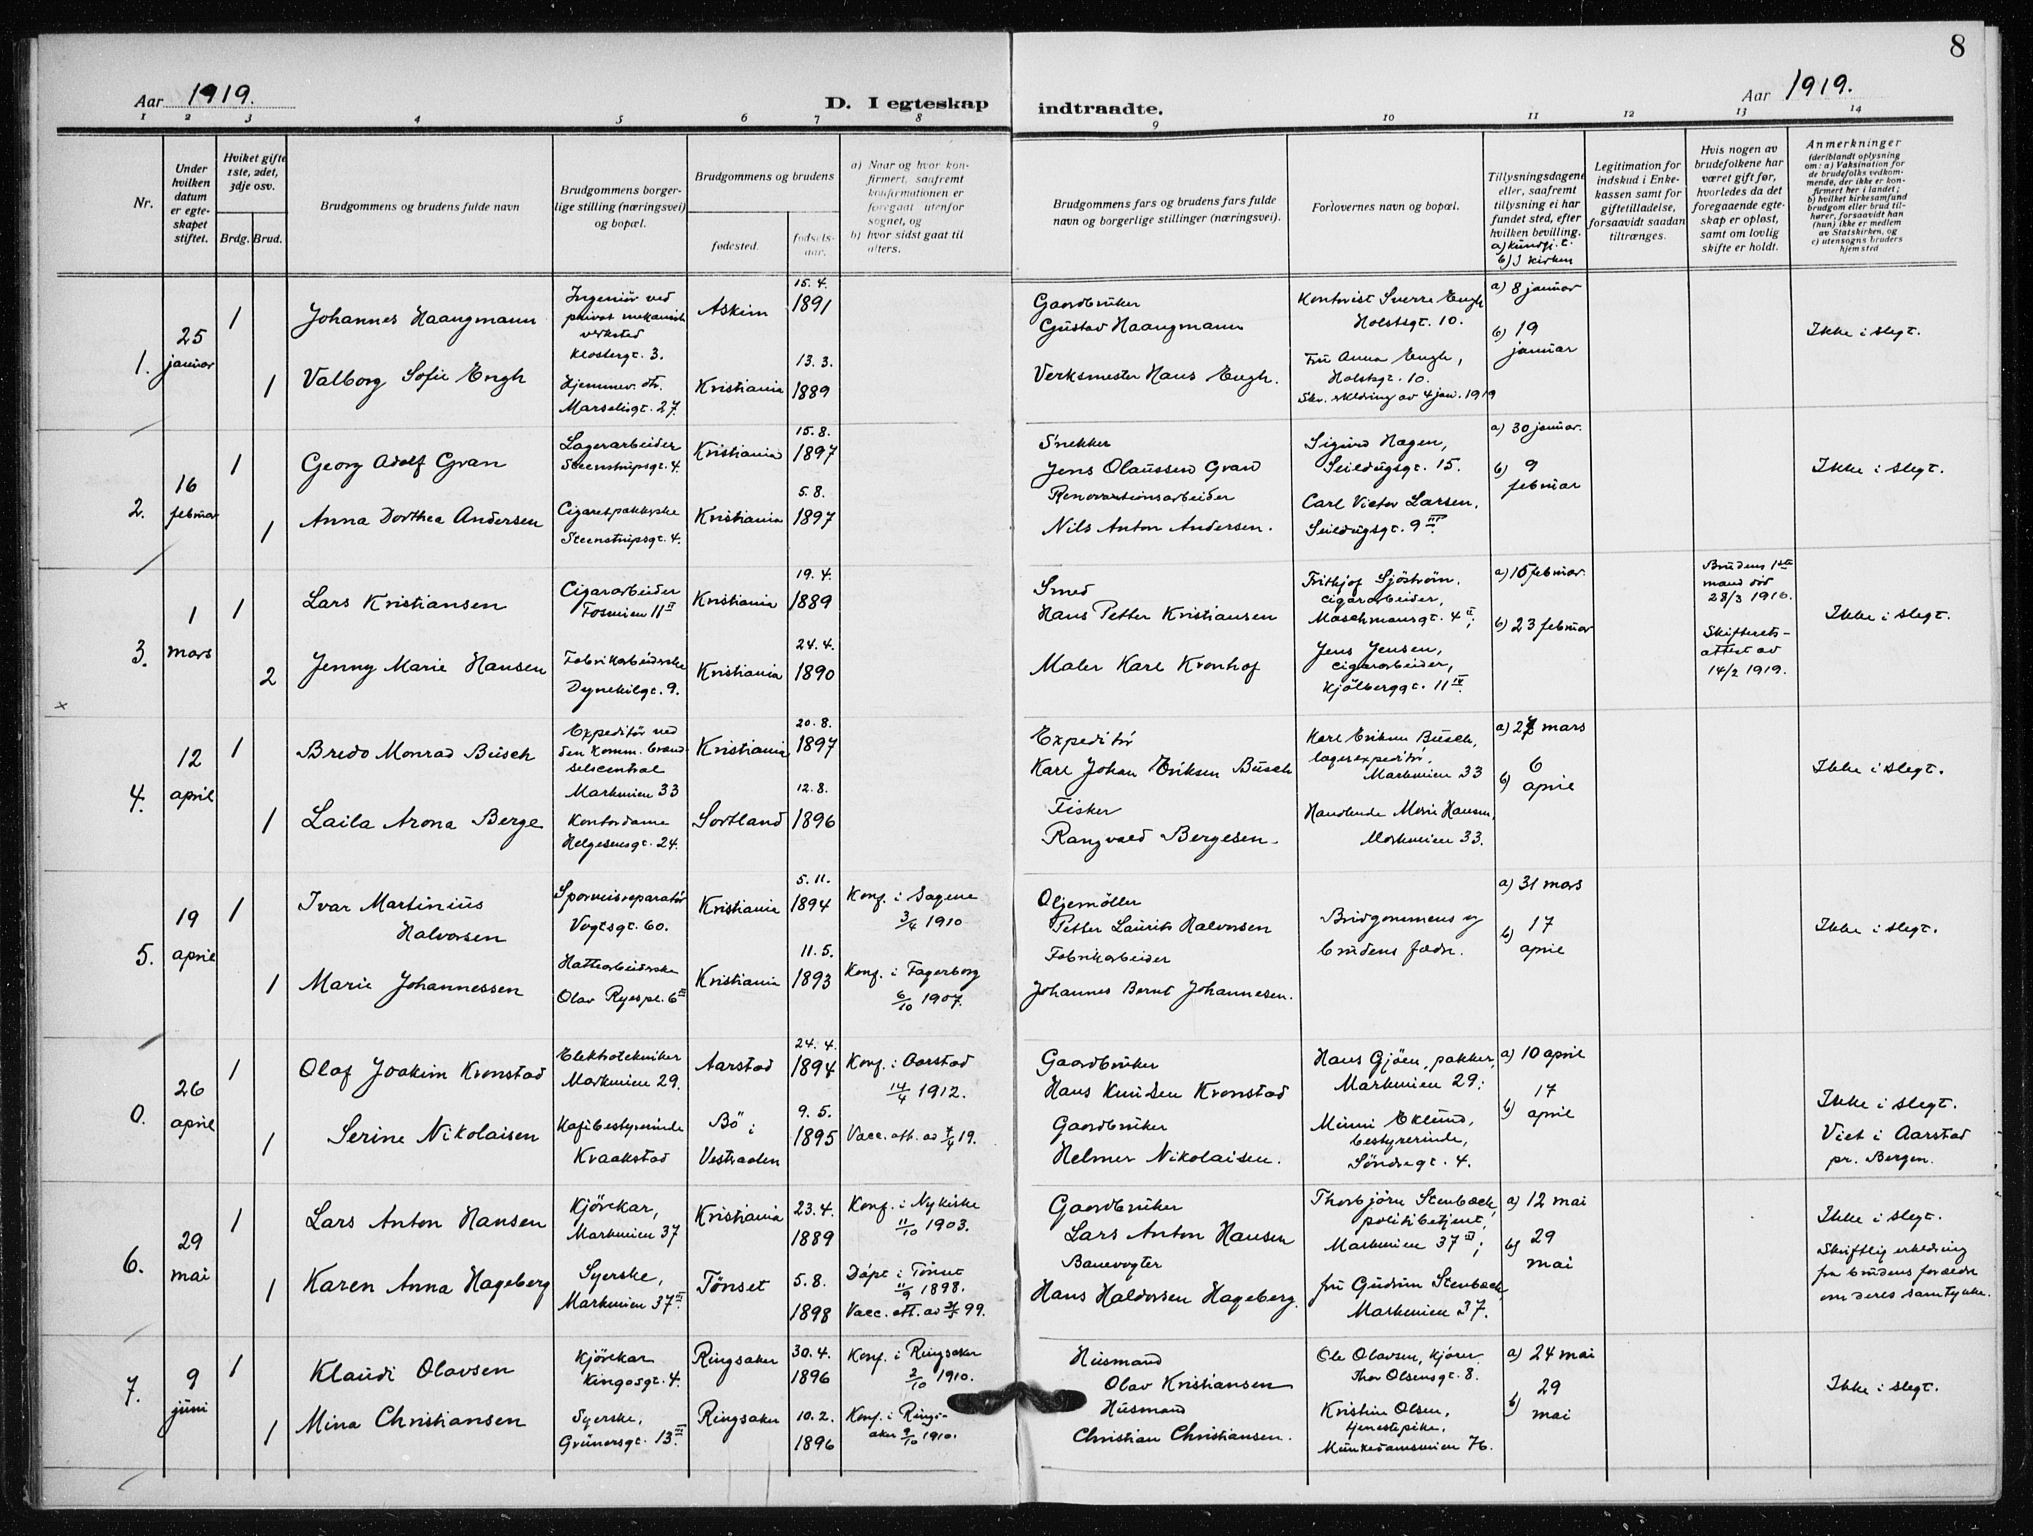 8
Aar 1919.
D. I egteskap
indtraadte.
Aar 1919.
1 2 3 4 5 6 7 8 9 10 11 12 13 14
Nr.
Under
hvilken
datum
er egte-
skapet
stiftet.
Hviket gifte
1ste, 2det,
3dje osv.
Brdg. Brud.
Brudgommens og brudens fulde navn
Brudgommens borger-
lige stilling (næringsvei)
og bopæl.
Brudgommens og brudens
fødested.
fødsels-
aar.
a) Naar og hvor kon-
firmert, saafremt
konfirmationen er
foregaat utenfor
sognet, og
b) hvor sidst gaat til
alters.
Brudgommens fars og brudens fars fulde
navn og borgerlige stillinger (næringsvei).
Forlovernes navn og bopæl.
Tillysningsdagene
eller, saafremt
tillysning ei har
fundet sted, efter
hvilken bevilling.
a) kundgj. t.
b) I kirken
Legitimation for
indskud i Enke-
kassen samt for
giftetilladelse,
forsaavidt saadan
tiltrænges.
Hvis nogen av
brudefolkene har
været gift før,
hvorledes da det
foregaaende egte-
skap er opløst,
samt om lovlig
skifte er holdt.
Anmerkninger
(deriblandt oplysning
om: a) Vaksination for
de brudefolks vedkom-
mende, der ikke er kon-
firmert her i landet;
b) hvilket kirkesamfund
brudgom eller brud til-
hører, forsaavidt han
(hun) ikke er medlem
av Statskirken, og
c) utensogns bruders
hjemsted
1.
25
januar
1
Johannes Haangmann
Ingeniør ved
privat mekanisk
verksted
Klostergt. 3.
Askim
15.4.
1891
Gaardbruker
Gustav Haangmann
Kontorist Sverre Engh
Holstsgt. 10.
a) 8 januar
b) 19
januar
Ikke i slegt.
1
Valborg Sofie Engh
Hjemmev. dtr.
Marselisgt. 27
Kristiania
13.3.
1889
Verksmester Hans Engh.
Fru Anna Engh,
Holstsgt. 10.
Skr. erklæring av 4 jan. 1919
2.
16
februar
1
Georg Adolf Gran
Lagerarbeider
Steenstrupsgt. 4.
Kristiania
15.8.
1897
Snekker
Jens Olaussen Gran
Sigurd Hagen,
Seildugsgt. 15.
a) 30 januar.
b) 9
februar
Ikke i slegt.
1
Anna Dorthea Andersen
Cigaretpakkerske
Steenstrupsgt. 4.
Kristiania
5.8.
1897
Renovationsarbeider
Nils Anton Andersen.
Carl Victor Larsen,
Seildugsgt. 9 III.
3.
1
mars
1
Lars Kristiansen
Cigararbeider
Fosveien 11 II
Kristiania
19.4.
1889
Smed
Hans Petter Kristiansen
Frithjof Sjöström,
cigararbeider,
Maschmansgt. 4 II;
a) 15 februar.
b) 23 februar
Brudens 1ste
mand død
28/3 1916.
Skifterets-
attest av
14/2 1919.
Ikke i slegt.
2
Jenny Marie Hansen
Fabrikarbeiderske
Dynekilgt. 9.
Kristiania
24.4.
1890
Maler Karl Kronhof
Jens Jensen,
cigararbeider,
Kjölberggt. 11 IV.
x
4.
12
april
1
Bredo Monrad Busch
Expeditör ved
den komm. brænd-
selscentral
Markveien 33
Kristiania
20.8.
1897
Expeditör
Karl Johan Eriksen Busch
Karl Eriksen Busch,
lagerexpeditör,
Markveien 33
a) 27 mars
b) 6
april
Ikke i slegt.
1
Laila Arona Berge
Kontordame
Helgesensgt. 24.
Sortland
12.8.
1896
Fisker
Rangvald Bergesen.
Handlende Marie Hansen,
Markveien 33.
5.
19
april
1
Ivar Martinius
Halvorsen
Sporveisreparatör
Vogtsgt. 60.
Kristiania
5.11.
1894
Konf. i Sagene
3/4 1910
Oljemöller
Petter Laurits Halvorsen
Brudgommens og
brudens fædre.
a) 31 mars
b) 17
april
Ikke i slegt.
1
Marie Johannessen
Hattearbeiderske
Olav Ryespl. 6 III
Kristiania
11.5.
1893
Konf. i Fagerborg
6/10 1907.
Fabrikarbeider
Johannes Bernt Johannesen.
0.
26
april
1
Olaf Joakim Kronstad
Elektrotekniker
Markveien 29.
Aarstad
24.4.
1894
Konf. i Aarstad
14/4 1912.
Gaardbruker
Hans Knudsen Kronstad
Hans Gjöen, pakker,
Markveien 29;
a) 10 april
b) 17
april
Ikke i slegt.
Viet i Aarstad
pr. Bergen.
1
Serine Nikolaisen
Kafébestyrerinde
Kraakstad
Bö i
Vestraalen
9.5.
1895
Vacc. att. av 7/4 19.
Gaardbruker
Helmer Nikolaisen.
Minni Eklund,
bestyrerinde,
Söndregt. 4.
6.
29
mai
1
Lars Anton Hansen
Kjörekar,
Markveien 37
Kristiania
23.4.
1889
Konf. i Nykirke
11/10 1903.
Gaardbruker
Lars Anton Hansen
Thorbjörn Stenbæck,
politibetjent,
Markveien 37 III;
a) 12 mai
b) 29
mai
Ikke i slegt.
Skriftlig erklæring
fra brudens forældre
om deres samtykke.
1
Karen Anna Hageberg
Syerske,
Markveien 37 III.
Tönset
5.8.
1898
Döpt i Tönset
11/9 1898.
Vacc. att. av 99.
Banevogter
Hans Haldorsen Hageberg.
fru Gudrun Stenbæck,
Markveien 37.
7.
9
juni
1
Klaudi Olavsen
Kjörekar
Kingosgt. 4.
Ringsaker
30.4.
1896
Konf. i Ringsaker
2/10 1910.
Husmand
Olav Kristiansen
Ole Olavsen, kjörer,
Thor Olsensgt. 8.
a) 24 mai
b) 29
mai
Ikke i slegt.
1
Mina Christiansen
Syerske,
Grünersgt. 13 III.
Ringsaker
10.2.
1896
Konf. i Rings-
aker 9/10 1910.
Husmand
Christian Christiansen.
Kristine Olsen,
tjenestepike,
Munkedamsveien 76.